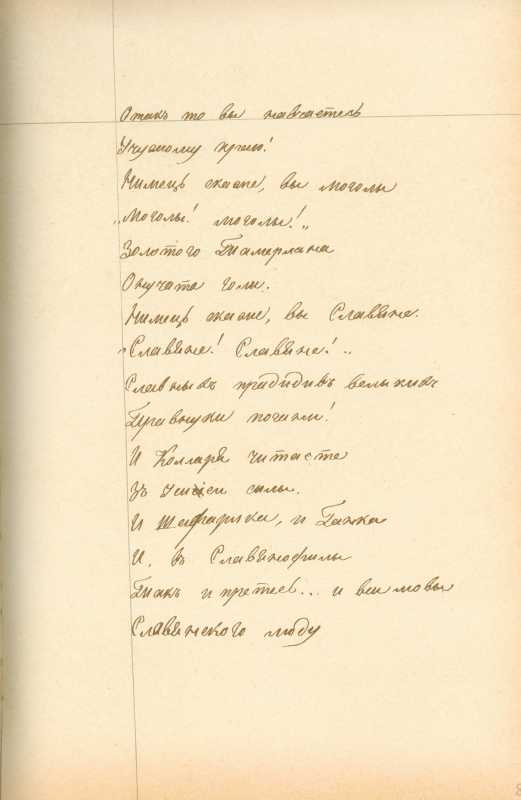 Отакъ то вы навчаетесь
Учужому краю!
Нимець скаже, вы моголы
„Моголы! моголы!„
Золотого Тамерлана
Онучата голи.
Нимець скаже, вы Славяне.
„Славяне! Славяне!„
Славныхъ прадидивъ велыкихъ
Правнуки погани!
И Коллара читаете
Зъ усіеи силы.
И Шафарика, и Ганка
И въ Славянофилы
Такъ и претесь... и вси мовы
Славянского люду